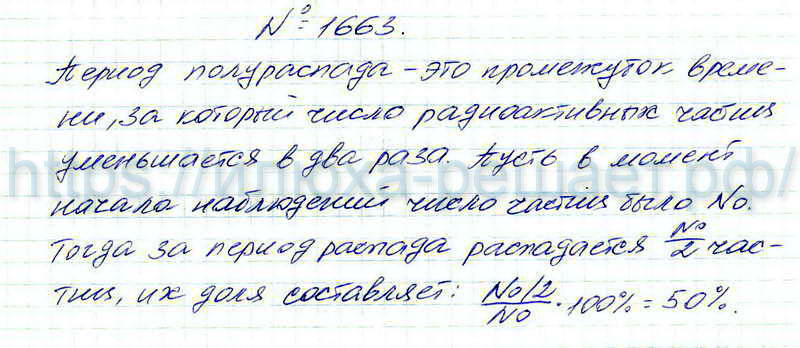 № 1663.
Период полураспада – это промежуток време-
ни, за который число радиоактивных частиц
уменьшается в два раза. Пусть в момент
https://ипоха-решает.рф/
начала наблюдений число частиц было N₀.
Тогда за период распада распадается N₀/2 час-
тиц, их доля составляет: (N₀/2)/N₀ · 100% = 50%.